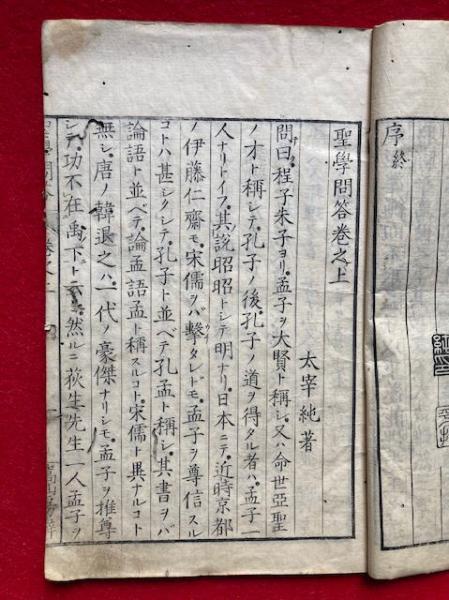 序終
聖學問答卷之上
太宰純著
問曰程子朱子ヨリ孟子ヲ大賢ト稱シ又ハ命世亞聖
ノ才ト稱シテ孔子ノ後孔子ノ道ヲ得タル者ハ孟子一
人ナリトイフ其說昭昭トシテ明ナリ日本ニテ近時京都
ノ伊藤仁齋モ宋儒ヲバ擊タレドモ孟子ヲ尊信スル
コトハ甚シクシテ孔子ト並ベテ孔孟ト稱シ其書ヲバ
論語ト並ベテ論孟語孟ト稱スルコト宋儒ト異ナルコト
無シ唐ノ韓退之ハ一代ノ豪傑ナリシモ孟子ヲ推尊
シテ功不在禹下ト云然ルニ荻生先生一人孟子ヲ